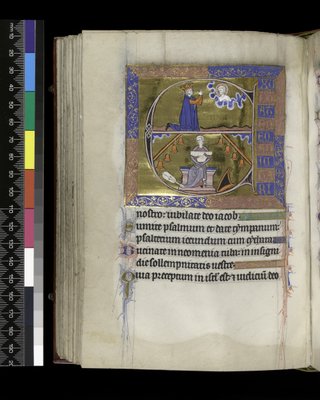 nostro: iubilate deo iacob
Sumite psalmum et date tympanum:
psalterium iocundum cum cythara
Bucinate in neomenia tuba: in insigni
die sollempnitatis uestre
Quia preceptum in isrl est: ⁊ iudicium deo